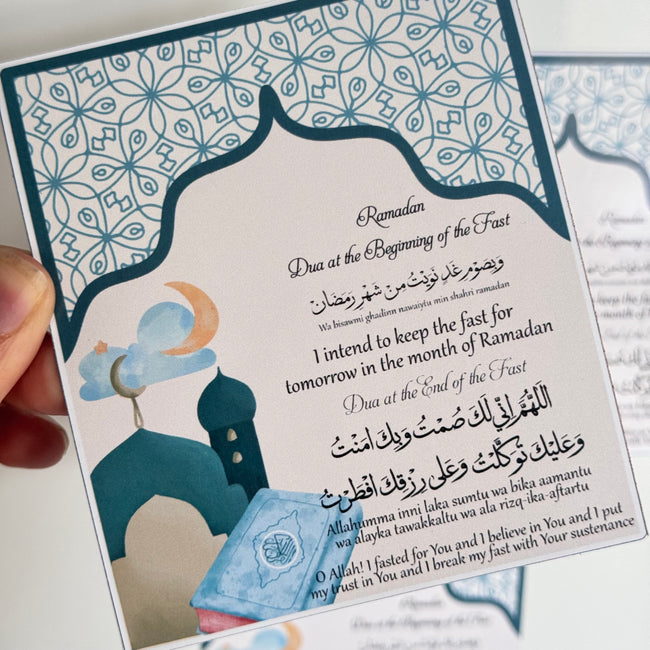 Ramadan
Dua at the Beginning of the Fast
وَبِصَوْمِ غَدٍ نَوَيْتُ مِنْ شَهْرِ رَمَضَانَ
Wa bisawmi ghadinn nawaiytu min shahri ramadan
I intend to keep the fast for
tomorrow in the month of Ramadan
Dua at the End of the Fast
اَللّٰهُمَّ اِنِّى لَكَ صُمْتُ وَبِكَ اٰمَنْتُ
وَعَلَيْكَ تَوَكَّلْتُ وَعَلٰى رِزْقِكَ اَفْطَرْتُ
Allahumma inni laka sumtu wa bika aamantu
wa alayka tawakkaltu wa ala rizq-ika-aftartu
O Allah! I fasted for You and I believe in You and I put
my trust in You and I break my fast with Your sustenance